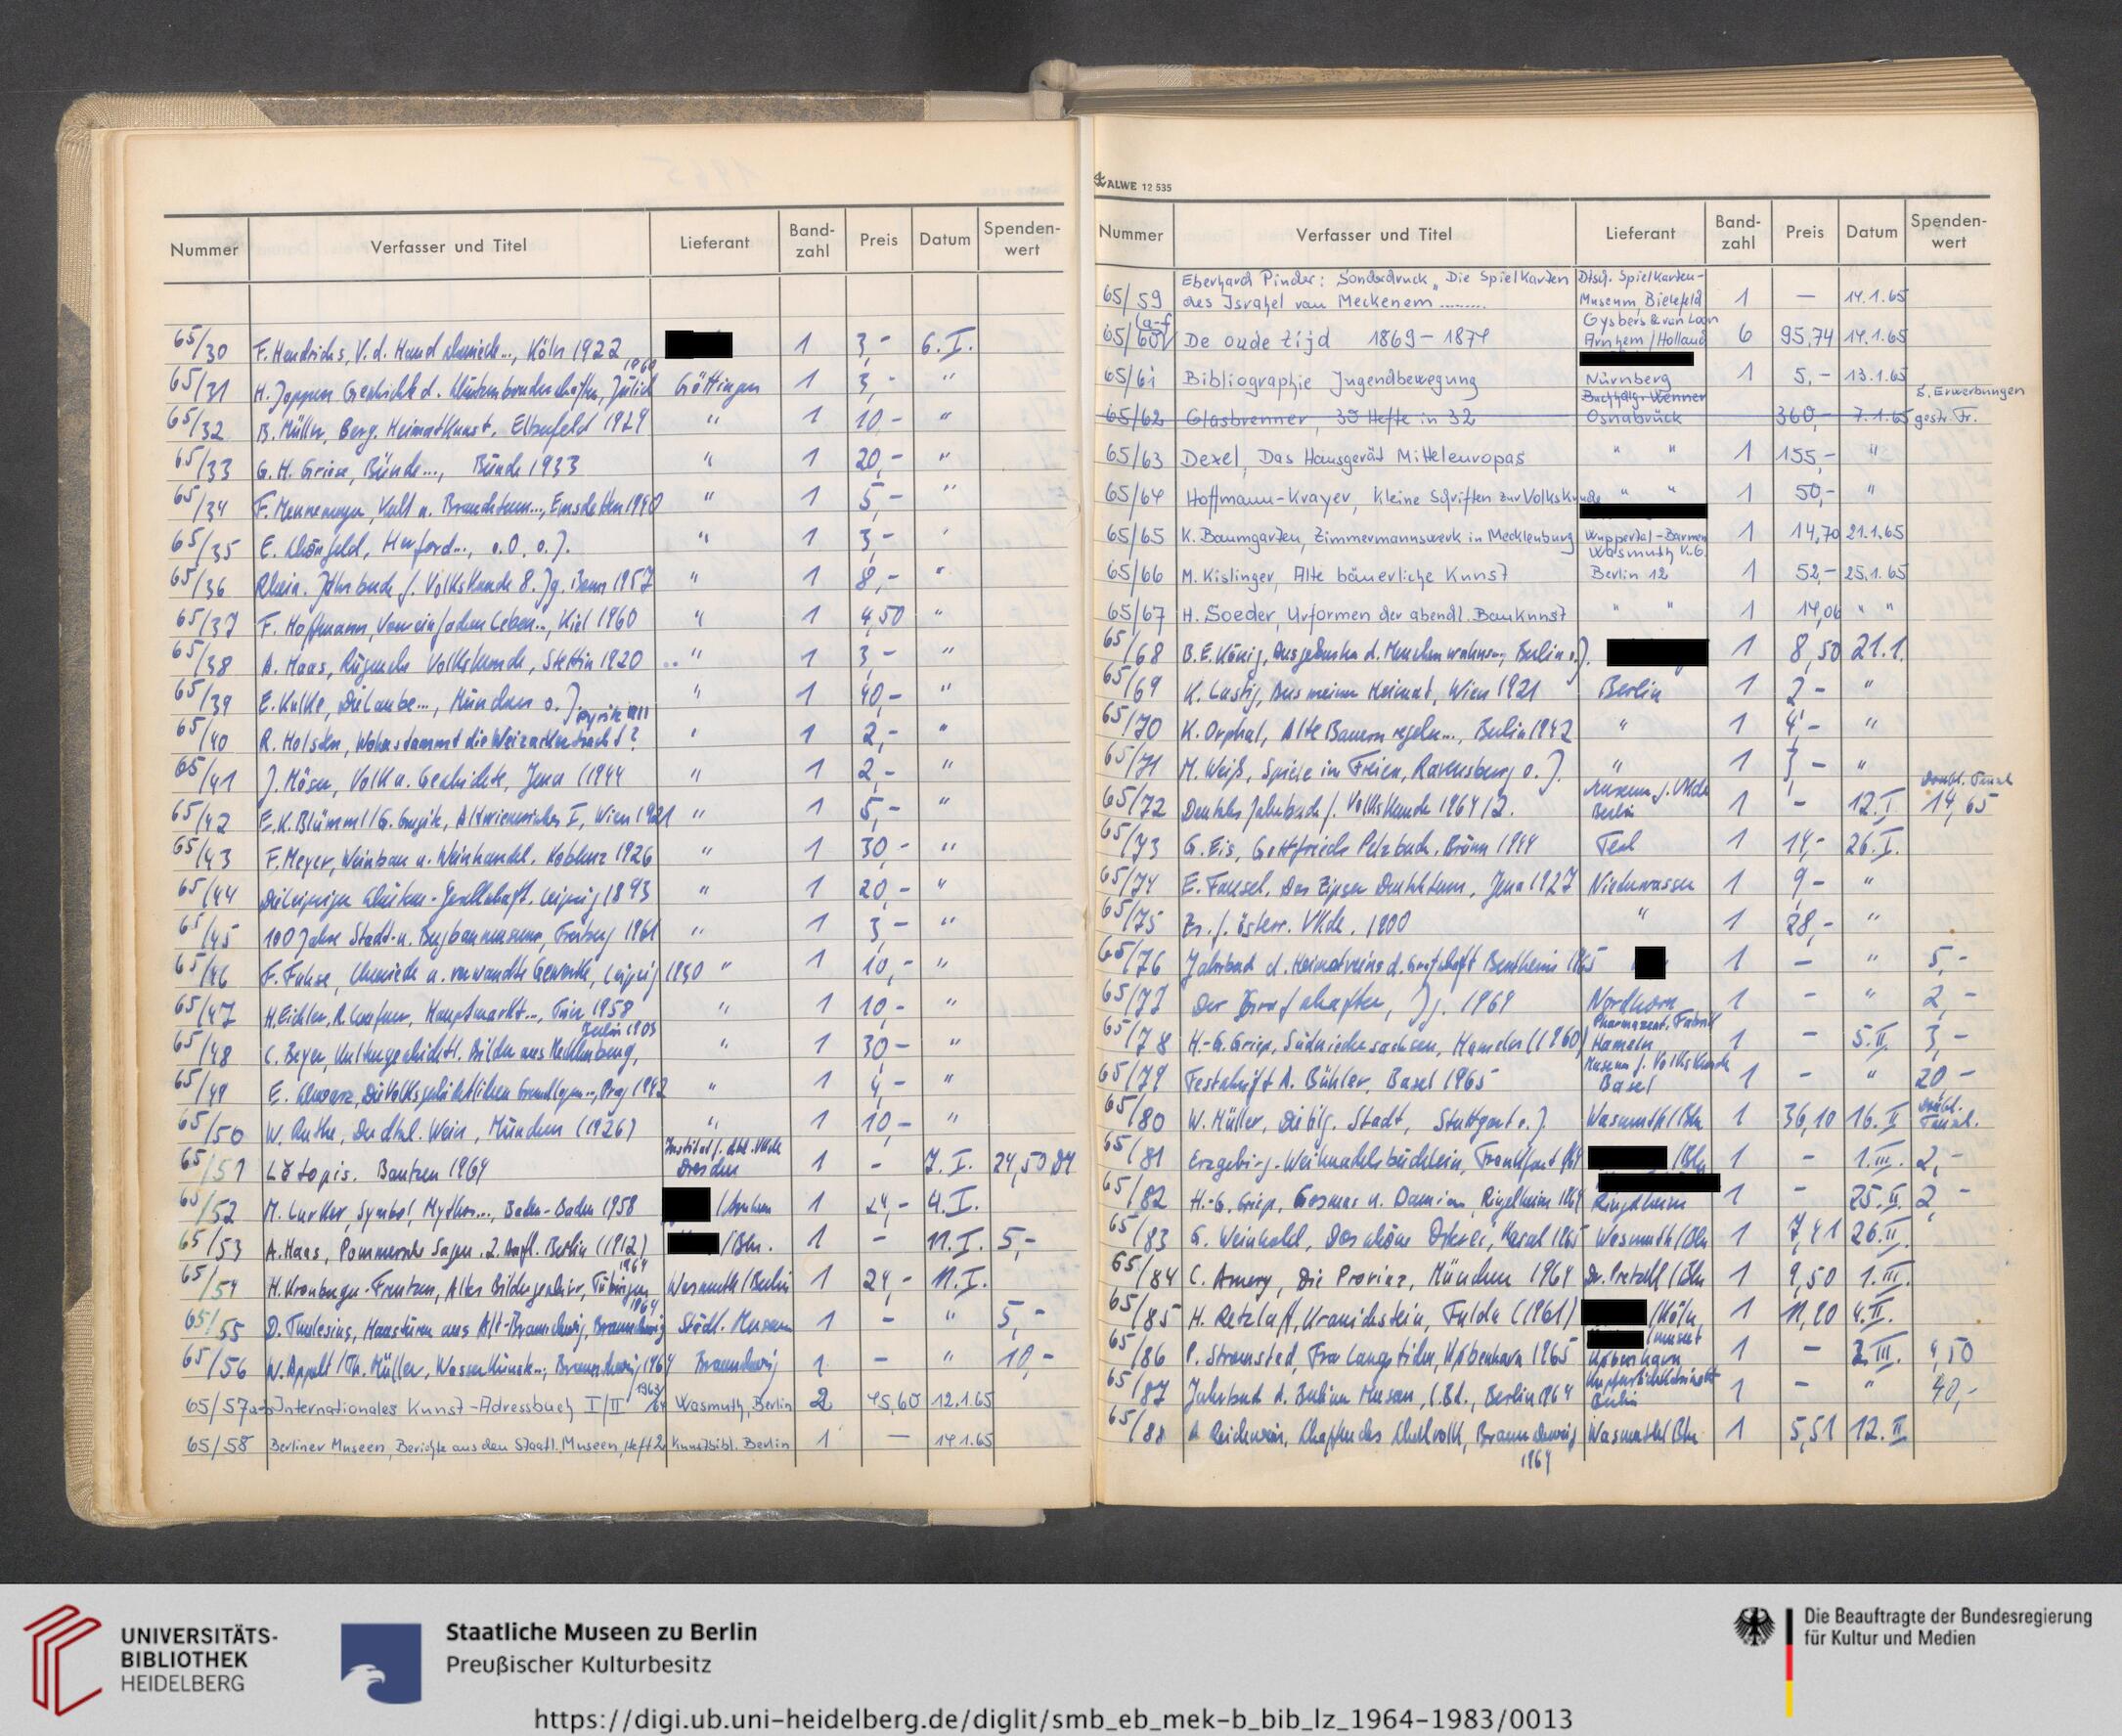 Nummer Verfasser und Titel Lieferant Band-zahl Preis Datum Spenden-wert
65/30 F. Hendrichs, V. d. Hand Köln 1922 1 3,- 6. I.
65/31 H. Joppen, Geschichte d. Jülich 1960 Göttingen 1 3,- "
65/32 B. Müller, Berg. Heimatkunst, Elberfeld 1924 " 1 10- "
65/33 G. H. Griese, Bünde..., Bünde 1933 " 1 20,- "
65/34 F. Kult u. Brauchtum..., Emsdetten 1940 " 1 5,- "
65/35 E. Schönfeld, Herford..., o. O. o. J. " 1 3,- "
65/36 Rhein. Jahrbuch f. Volkskunde 8. Jg. Bonn 1957 " 1 8,- "
65/37 F. Hoffmann, Von einfachem Leben..., Kiel 1960 " 1 4,50 "
65/38 A. Haas, Rügensche Volkskunde, Stettin 1920 " 1 3,- "
65/39 E. Kulke, Die Laube..., München o. J. " 1 40,- "
65/40 R. Holsten, Woher stammt die Weizackertracht? Pyritz 1911 " 1 2,- "
65/41 J. Möser, Volk u. Geschichte, Jena (1944 " 1 2,- "
65/42 E. K. Blümml / G. Gugitz, Altwienerisches I, Wien 1921 " 1 5,- "
65/43 F. Meyer, Weinbau u. Weinhandel. Koblenz 1926 " 1 30,- "
65/44 Die Leipziger Gesellschaft. Leipzig 1893 " 1 20,- "
65/45 100 Jahre Stadt- u. Bergbaumuseum, Freiberg 1961 " 1 3,- "
65/46 F. Fuhse, Schmiede u. verwandte Gewerbe, Leipzig 1930 " 1 10,- "
65/47 H. Eichler, R. Laufner, Hauptmarkt..., Trier 1958 " 1 10,- "
65/48 C. Beyer, Kulturgeschichtl. Bilder aus Mecklenburg, Berlin 1903 " 1 30- "
65/49 E. Schwarz, Die Volksgeschichtlichen Grundlagen..., Prag 1942 " 1 4,- "
65/50 W. Ruthe, Der dtsch. Wein, München (1926) " 1 10,- "
65/51 Lětopis. Bautzen 1964 Institut f. dtsch. Vkde Dresden 1 - 7. I. 24,50 DM
65/52 M. Lurker, Symbol, Mythos..., Baden-Baden 1958 1 24,- 4. I.
65/53 A. Haas, Pommersche Sagen. 2. Aufl. Berlin (1912) /Bln. 1 - 11. I. 5,-
65/54 H. Kronberger-Frentzen, Altes Bildergeschirr, Tübingen 1964 Wasmuth/Berlin 1 24,- 11. I.
65/55 D. Thulesius, Haustüren aus Alt-Braunschweig, Braunschweig 1964 Städt. Museum 1 - " 5,-
65/56 W. Appelt / Th. Müller, Wasserkünste..., Braunschweig 1964 Braunschweig 1 - " 10,-
65/57a-b Internationales Kunst-Adressbuch I/II 1963/64 Wasmuth, Berlin 2 45,60 12.1.65
65/58 Berliner Museen, Berichte aus den Staatl. Museen, Heft 2 Kunstbibl. Berlin 1 - 14.1.65
ALWE 12 535
Nummer Verfasser und Titel Lieferant Band-zahl Preis Datum Spenden-wert
65/59 Eberhard Pinder: Sonderdruck „Die Spielkarten des Israhel van Meckenem......... Dtsch. Spielkarten-Museum Bielefeld 1 - 14.1.65
65/60 (a-f) De oude tijd 1869-1874 Gysbers & van Loon Arnhem/Holland 6 95,74 14.1.65
65/61 Bibliographie Jugendbewegung Nürnberg 1 5,- 13.1.65
65/62 Glasbrenner, 30 Hefte in 32 Buchhdlg. Wenner Osnabrück 360,- 7.1.65 s. Erwerbungen gestr. Fr.
65/63 Dexel, Das Hausgerät Mitteleuropas " " 1 155,- "
65/64 Hoffmann-Krayer, Kleine Schriften zur Volkskunde " " 1 50,- "
65/65 K. Baumgarten, Zimmermannswerk in Mecklenburg Wuppertal-Barmen 1 14,70 21.1.65
65/66 M. Kislinger, Alte bäuerliche Kunst Wasmuth K.G. Berlin 12 1 52,- 25.1.65
65/67 H. Soeder, Urformen der abendl. Baukunst " " 1 14,06 " "
65/68 B. E. König, Ausgeburten d. Menschenwahns..., Berlin o. J. 1 8,50 21.1.
65/69 K. Lustig, Aus meiner Heimat, Wien 1921 Berlin 1 2- "
65/70 K. Orphal, Alte Bauernregeln..., Berlin 1942 " 1 4,- "
65/71 M. Weiß, Spiele im Freien, Ravensburg o. J. " 1 3,- "
65/72 Deutsches Jahrbuch f. Volkskunde 1964/2. Museum f. Vkde Berlin 1 - 12. I 14,65
65/73 G. Eis, Gottfrieds Pelzbuch. Brünn 1944 1 14,- 26. I.
65/74 E. Fausel, Das Zipser Deutschtum, Jena 1927 Niederwasser 1 9- "
65/75 Zs. f. österr. Vkde. 1900 " 1 28,- "
65/76 Jahrbuch d. Heimatvereins d. Grafschaft Bentheim 1965 1 - " 5,-
65/77 Der Grafschafter, Jg. 1964 Nordhorn 1 - " 2,-
65/78 H.-G. Griep, Südniedersachsen, Hameln (1960) Pharmazeut. Fabrik Hameln 1 - 5. II. 3,-
65/79 Festschrift A. Bühler, Basel 1965 Museum f. Volkskunde Basel 1 - " 20,-
65/80 W. Müller, Die hlg. Stadt, Stuttgart o. J. Wasmuth/Bln 1 36,10 16. II
65/81 Erzgebirg. Weihnachtsbüchlein, Frankfurt /Bln 1 - 1. III. 2,-
65/82 H.-G. Griep, Cosmas u. Damian, Ringelheim 1964 Ringelheim 1 - 25. II. 2,-
65/83 G. Weinhold, Das schöne Osterei, Kassel 1965 Wasmuth/Bln 1 7,41 26. II.
65/84 C. Amery, Die Provinz, München 1964 Dr. Pretzell/Bln 1 9,50 1. III.
65/85 H. Retzlaff, Kranichstein, Fulda (1961) /Köln, 1 11,20 4. II.
65/86 P. Strømstad, Fra Langstiden, København 1965 København 1 - 2. III. 4,50
65/87 Jahrbuch d. Berliner Museen, 6. Bd., Berlin 1964 Kupferstichkabinett Berlin 1 - " 40,-
65/88 A. Reichwein, Schaffendes Schulvolk, Braunschweig 1964 Wasmuth/Bln 1 5,51 12. II
UNIVERSITÄTS-
BIBLIOTHEK
HEIDELBERG
Staatliche Museen zu Berlin
Preußischer Kulturbesitz
Die Beauftragte der Bundesregierung
für Kultur und Medien
https://digi.ub.uni-heidelberg.de/diglit/smb_eb_mek-b_bib_lz_1964-1983/0013